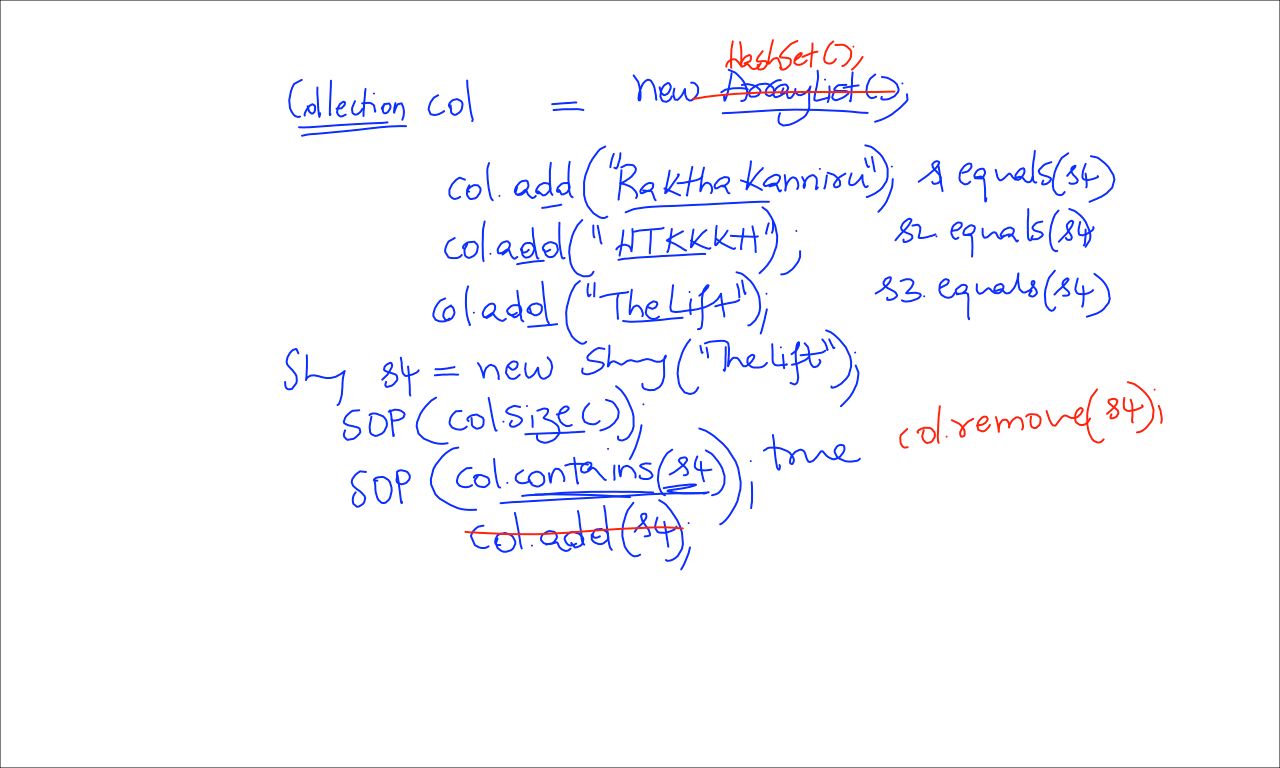 HashSet();
Collection col = new ArrayList();
col.add("RakthaKanniru"); s1 equals(s4)
col.add("HTKKKH"); s2 equals(s4)
col.add("TheLift"); s3. equals(s4)
s4 = new ("TheLift");
SOP(col.size());
col.remove(s4);
SOP(col.contains(s4)); true
col.add(s4);